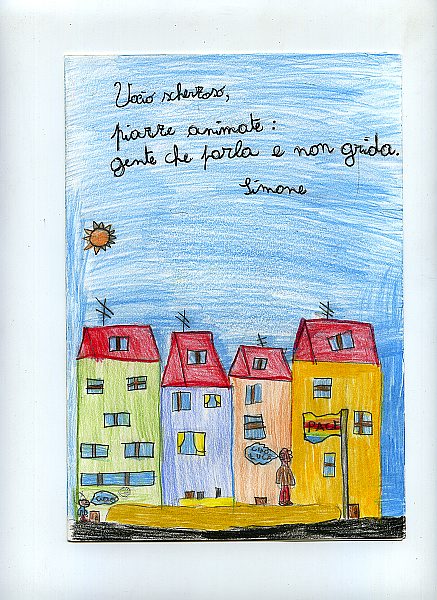 Vocio scherzoso,
piazze animate:
gente che parla e non grida.
Simone
PACE
CIAO
LUCA
CIAO